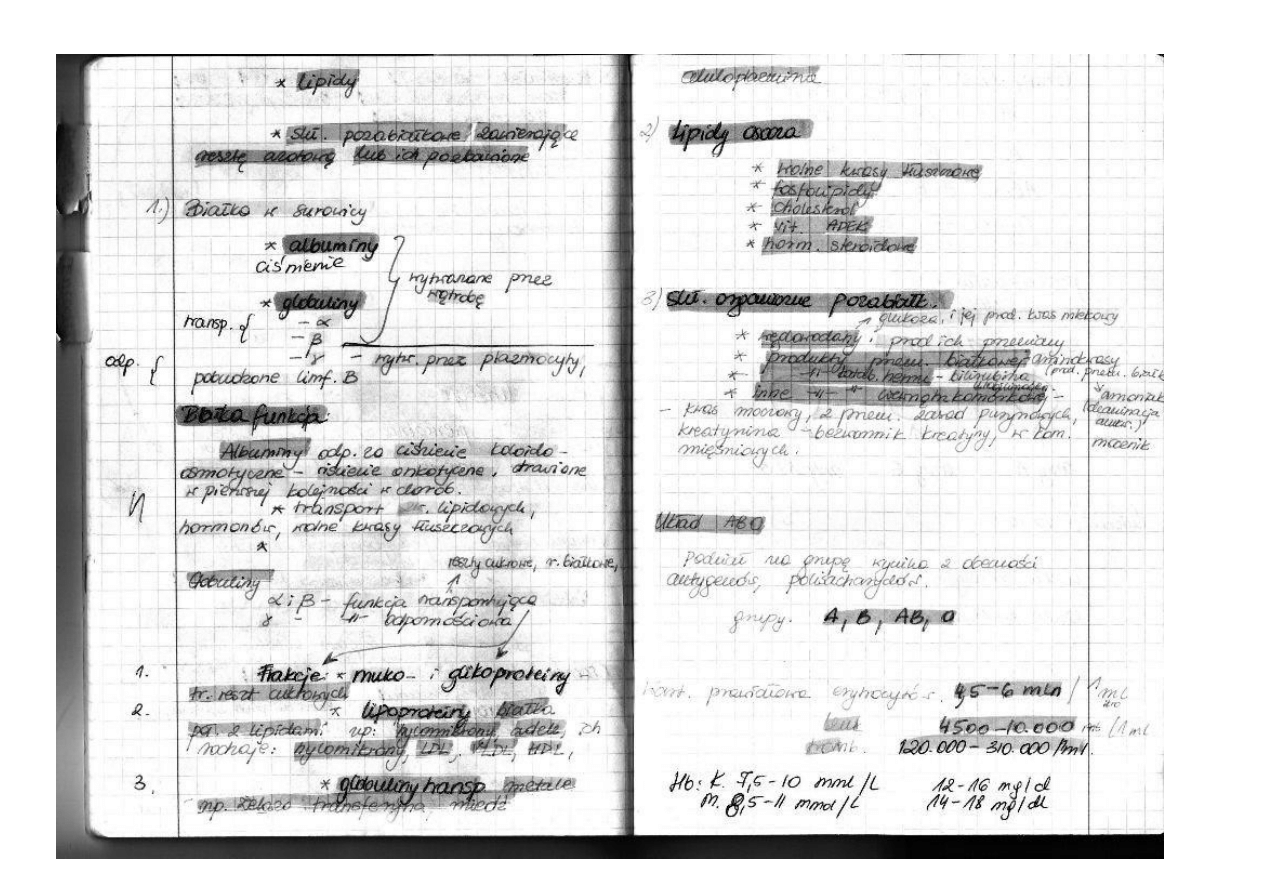 * lipidy
* skł. pozabiałkowe zawierające
resztę azotową lub ich pozbawione
1.) Białko w surowicy
* albuminy
ciśnienie
wytwarzane przez
wątrobę
* globuliny
transp. { - α
- β
odp. { - γ - wytw. przez plazmocyty,
pobudzone limf. B
Białka funkcja:
Albuminy odp. za ciśnienie koloido-
osmotyczne - ciśnienie onkotyczne, trawione
w pierwszej kolejności w chorob.
* transport lipidowych,
hormonów, wolne kwasy tłuszczowych
*
reszty cukrowe, r. białkowe,
Globuliny
α i β - funkcja transportująca
γ - -"- odpornościowa
1. Frakcje: * muko- i glikoproteiny
tr. reszt cukrowych
2. * lipoproteiny białka
poł. z lipidami np: hylomikrony, ch
rodzaje: hylomikrony, LDL, VLDL, HDL,
3. * globuliny transp. metale
np. żelazo transferyna, miedź
celuloplazmina
2) Lipidy osocza
* wolne kwasy tłuszczowe
* fosfolipidy
* cholesterol
* wit. ADEK
* horm. steroidowe
3) Skł. organiczne pozabiałk.
glukoza, i jej prod. kwas mlekowy
* węglowodany i prod ich przemiany
* produkty przem. białkowej aminokwasy
* -"- katab. hemu - bilirubina (prod. przem. białk
* inne -"- wewnątrzkomórkowej - amoniak
- kwas moczowy, z przem. zasad purynowych, (deaminacja
kreatynina - bezwodnik kreatyny, w kom. mocznik
mięśniowych.
Układ ABO
Podział na grupę wynika z obecności
antygenów, polisacharydów.
grupy. A, B, AB, O
prawidłowa erytrocytów. 4,5-6 mln / 1 ml
leuk 4500-10.000 / 1 ml
tromb. 120.000 - 310.000 /1ml.
Hb: K. 7,5-10 mml /L 12-16 mg/dl
M. 8,5-11 mmol/L 14-18 mg/dl